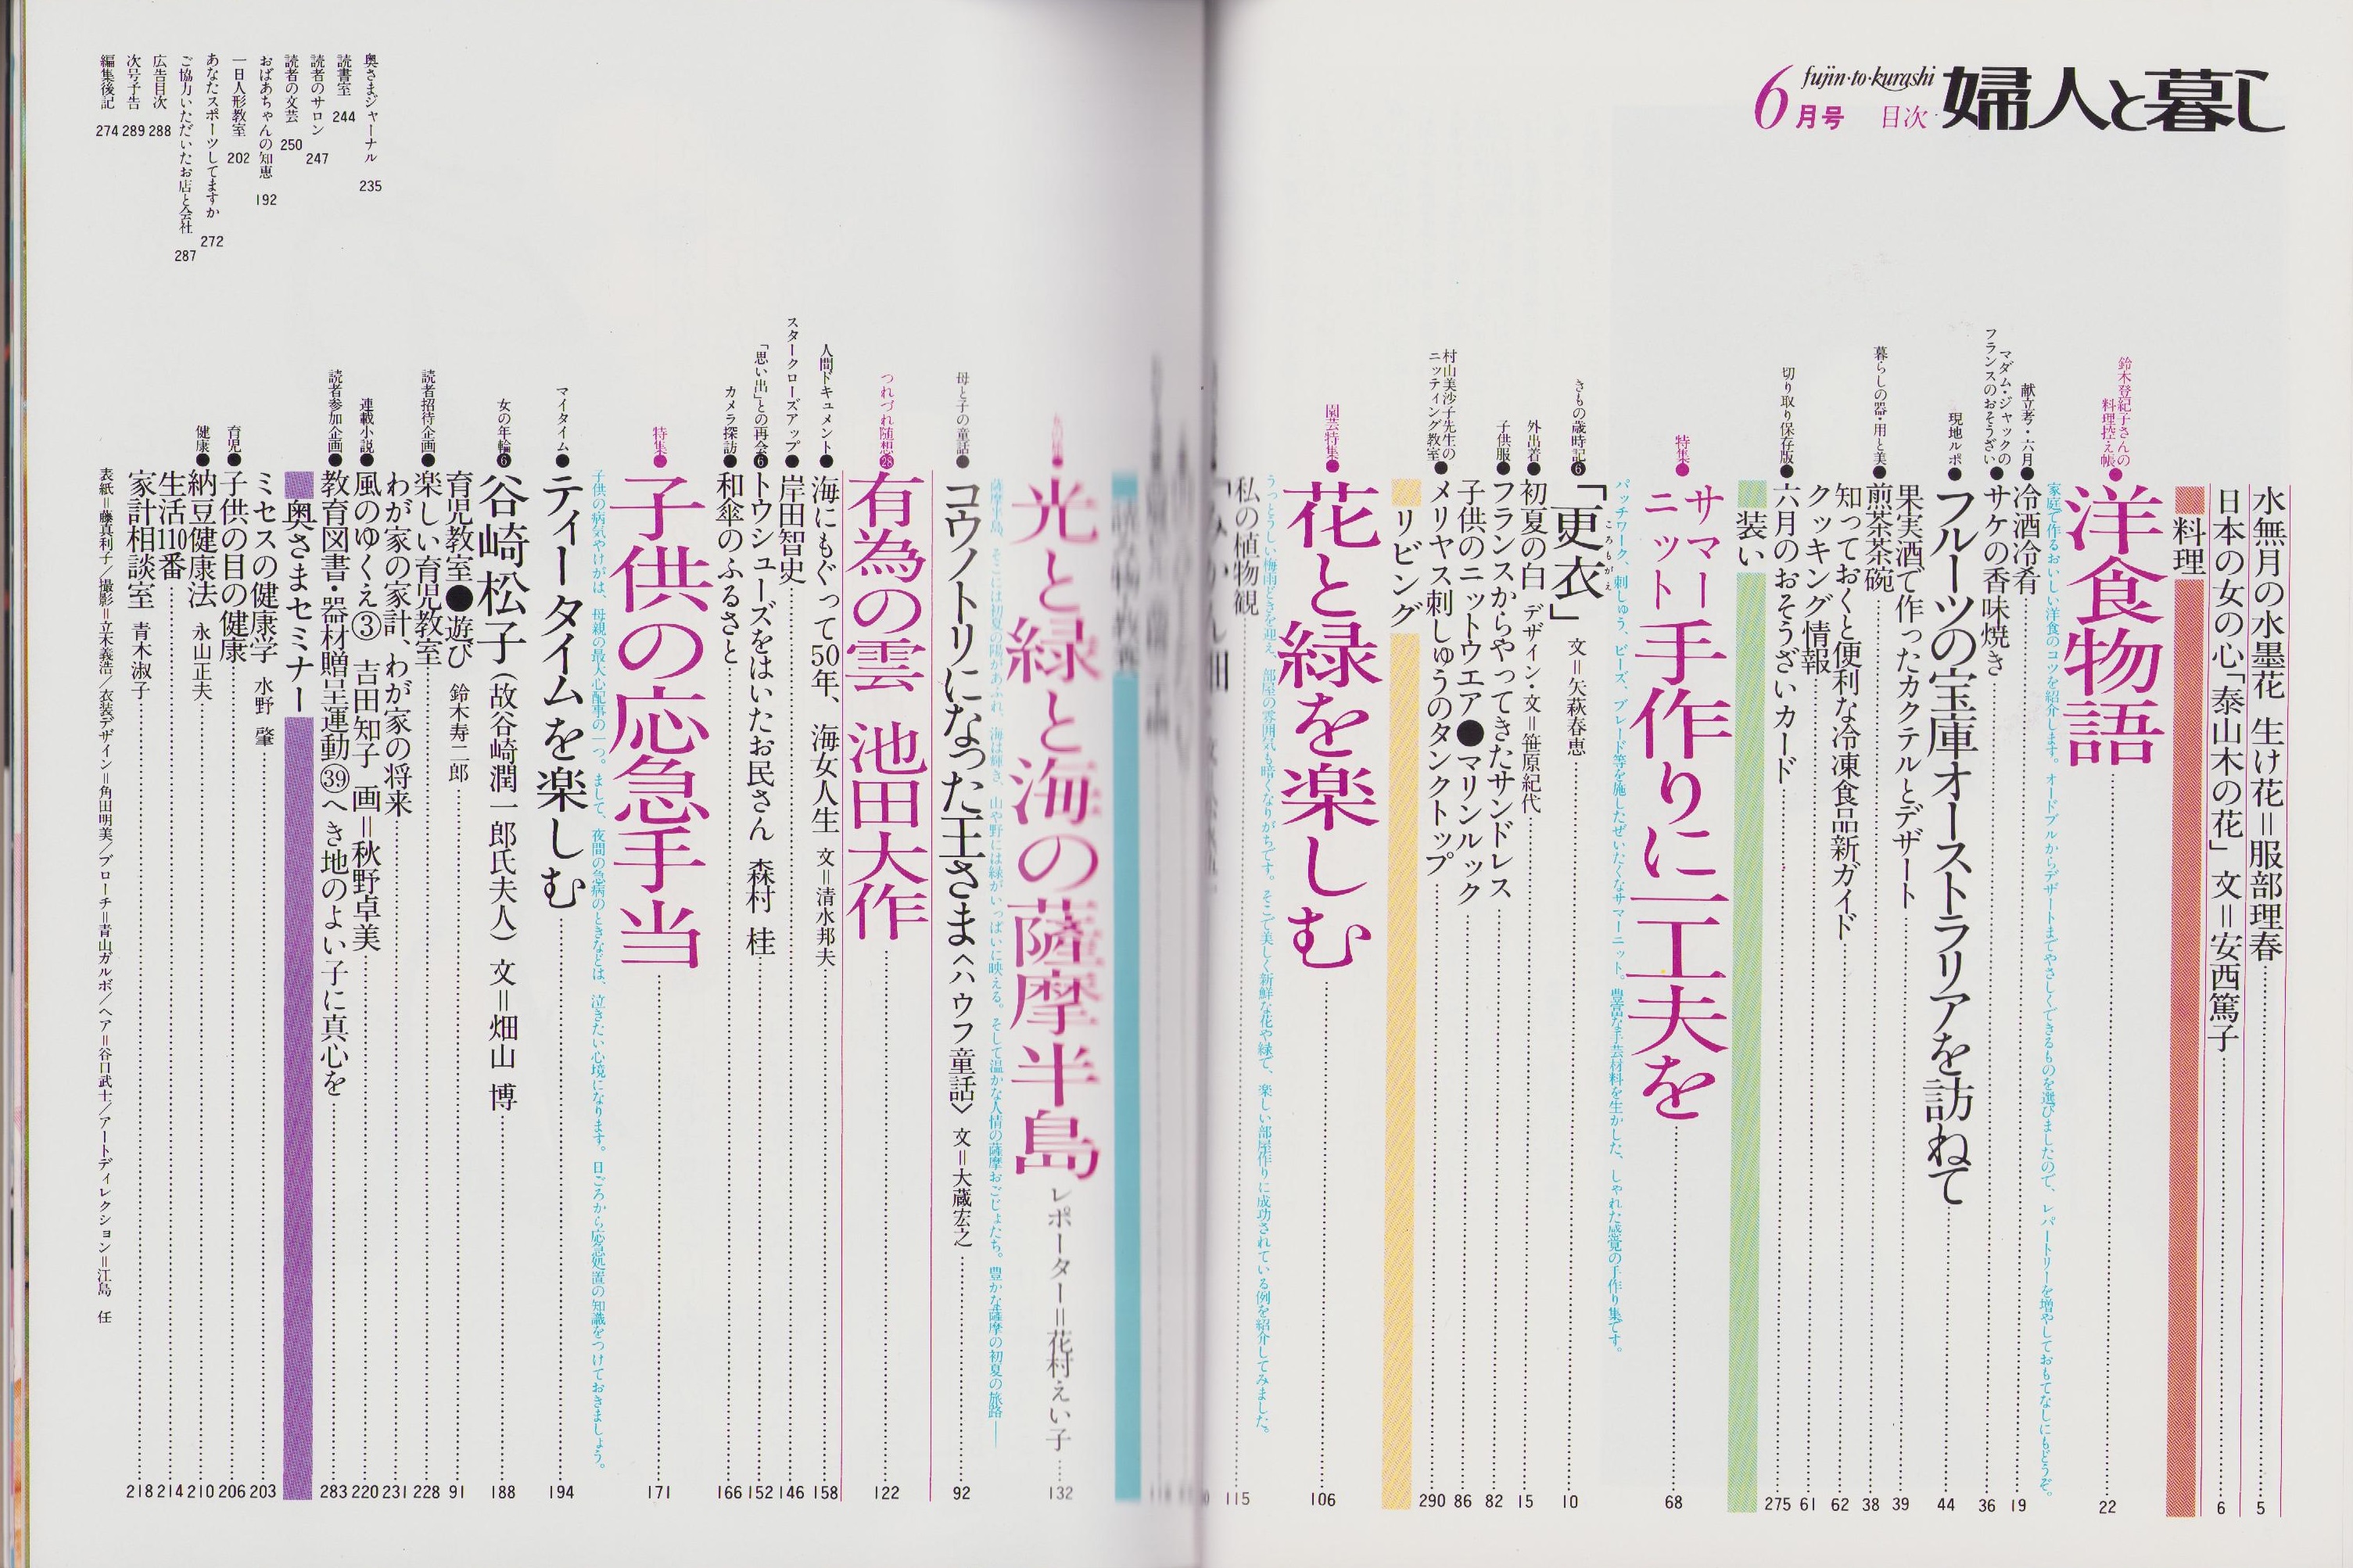 婦人と暮し
fujin-to-kurashi
6月号 目次
水無月の水墨花 生け花＝服部理春 5
日本の女の心「泰山木の花」 文＝安西篤子 6
料理
鈴木登紀子さんの料理控え帳●
洋食物語 22
家庭で作るおいしい洋食のコツを紹介します。オードブルからデザートまでやさしくできるものを選びましたので、レパートリーを増やしておもてなしにもどうぞ。
献立考・六月●冷酒冷肴 19
マダム・ジャックのフランスのおそうざい●サケの香味焼き 36
現地ルポ●フルーツの宝庫オーストラリアを訪ねて 44
果実酒で作ったカクテルとデザート 39
暮らしの器・用と美●煎茶茶碗 38
知っておくと便利な冷凍食品新ガイド 62
クッキング情報 61
切り取り保存版●六月のおそうざいカード 275
装い
特集●サマーニット手作りに一工夫を 68
パッチワーク、刺しゅう、ビーズ、ブレード等を施したぜいたくなサマーニット。豊富な手芸材料を生かした、しゃれた感覚の手作り集です。
きもの歳時記❻「更衣」 文＝矢萩春恵 10
ころもがえ
外出着●初夏の白 デザイン・文＝笹原紀代 15
子供服●フランスからやってきたサンドレス 82
子供のニットウエア●マリンルック 86
村山美沙子先生のニッティング教室●メリヤス刺しゅうのタンクトップ 290
リビング
園芸特集●花と緑を楽しむ 106
うっとうしい梅雨どきを迎え、部屋の雰囲気も暗くなりがちです。そこで美しく新鮮な花や緑で、楽しい部屋作りに成功されている例を紹介してみました。
私の植物観 115
光と緑と海の薩摩半島 レポーター＝花村えい子 132
薩摩半島、そこには初夏の陽があふれ、海は輝き、山や野には緑がいっぱいに映える。そして温かな人情の薩摩おごじょたち。豊かな薩摩の初夏の旅路――
母と子の童話●コウノトリになった王さま〈ハウフ童話〉 文＝大蔵宏之 92
つれづれ随想㉘
有為の雲 池田大作 122
人間ドキュメント●海にもぐって50年、海女人生 文＝清水邦夫 158
スタークローズアップ●岸田智史 146
「思い出」との再会❻トウシューズをはいたお民さん 森村 桂 152
カメラ探訪●和傘のふるさと 166
特集●子供の応急手当 171
子供の病気やけがは、母親の最大心配事の一つ。まして、夜間の急病のときなどは、泣きたい心境になります。日ごろから応急処置の知識をつけておきましょう。
マイタイム●ティータイムを楽しむ 194
女の年輪❻谷崎松子（故谷崎潤一郎氏夫人） 文＝畑山 博 188
育児教室●遊び 鈴木寿二郎 91
読者招待企画●楽しい育児教室 228
わが家の家計、わが家の将来 231
連載小説●風のゆくえ③ 吉田知子 画＝秋野卓美 220
読者参加企画●教育図書・器材贈呈運動㊴へき地のよい子に真心を 283
奥さまセミナー
ミセスの健康学 水野 肇 203
育児●子供の目の健康 206
健康●納豆健康法 永山正夫 210
生活110番 214
家計相談室 青木淑子 218
表紙＝藤真利子／撮影＝立木義浩／衣装デザイン＝角田明美／ブローチ＝青山ガルボ／ヘア＝谷口武士／アートディレクション＝江島 任
奥さまジャーナル 235
読書室 244
読者のサロン 247
読者の文芸 250
おばあちゃんの知恵 192
一日人形教室 202
あなたスポーツしてますか 272
ご協力いただいたお店と会社 287
広告目次 288
次号予告 289
編集後記 274